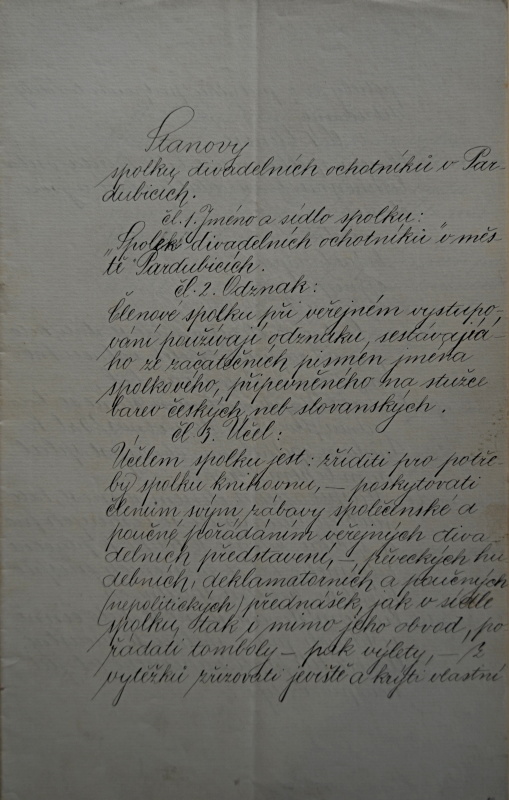 Stanovy
spolku divadelních ochotníků v Par-
dubicích.
čl. 1. Jméno a sídlo spolku:
„Spolek divadelních ochotníků" v měs-
tě Pardubicích.
čl. 2. Odznak:
Členové spolku při veřejném vystupo-
vání používají odznaku, sestávajícá-
ho ze začátečních písmen jména
spolkového, připevněného na stužce
barev českých neb slovanských.
čl 3. Účel:
Účelem spolku jest: zříditi pro potře-
by spolku knihovnu, — poskytovati
členům svým zábavy společenské a
poučné pořádáním veřejných diva-
delních představení, — pěveckých hu
debních, deklamatorních a poučných
(nepolitických) přednášek, jak v sídle
spolku, tak i mimo jeho obvod, po-
řádati tomboly — pak výlety, — z
výtěžků zřizovati jeviště a krýti vlastní